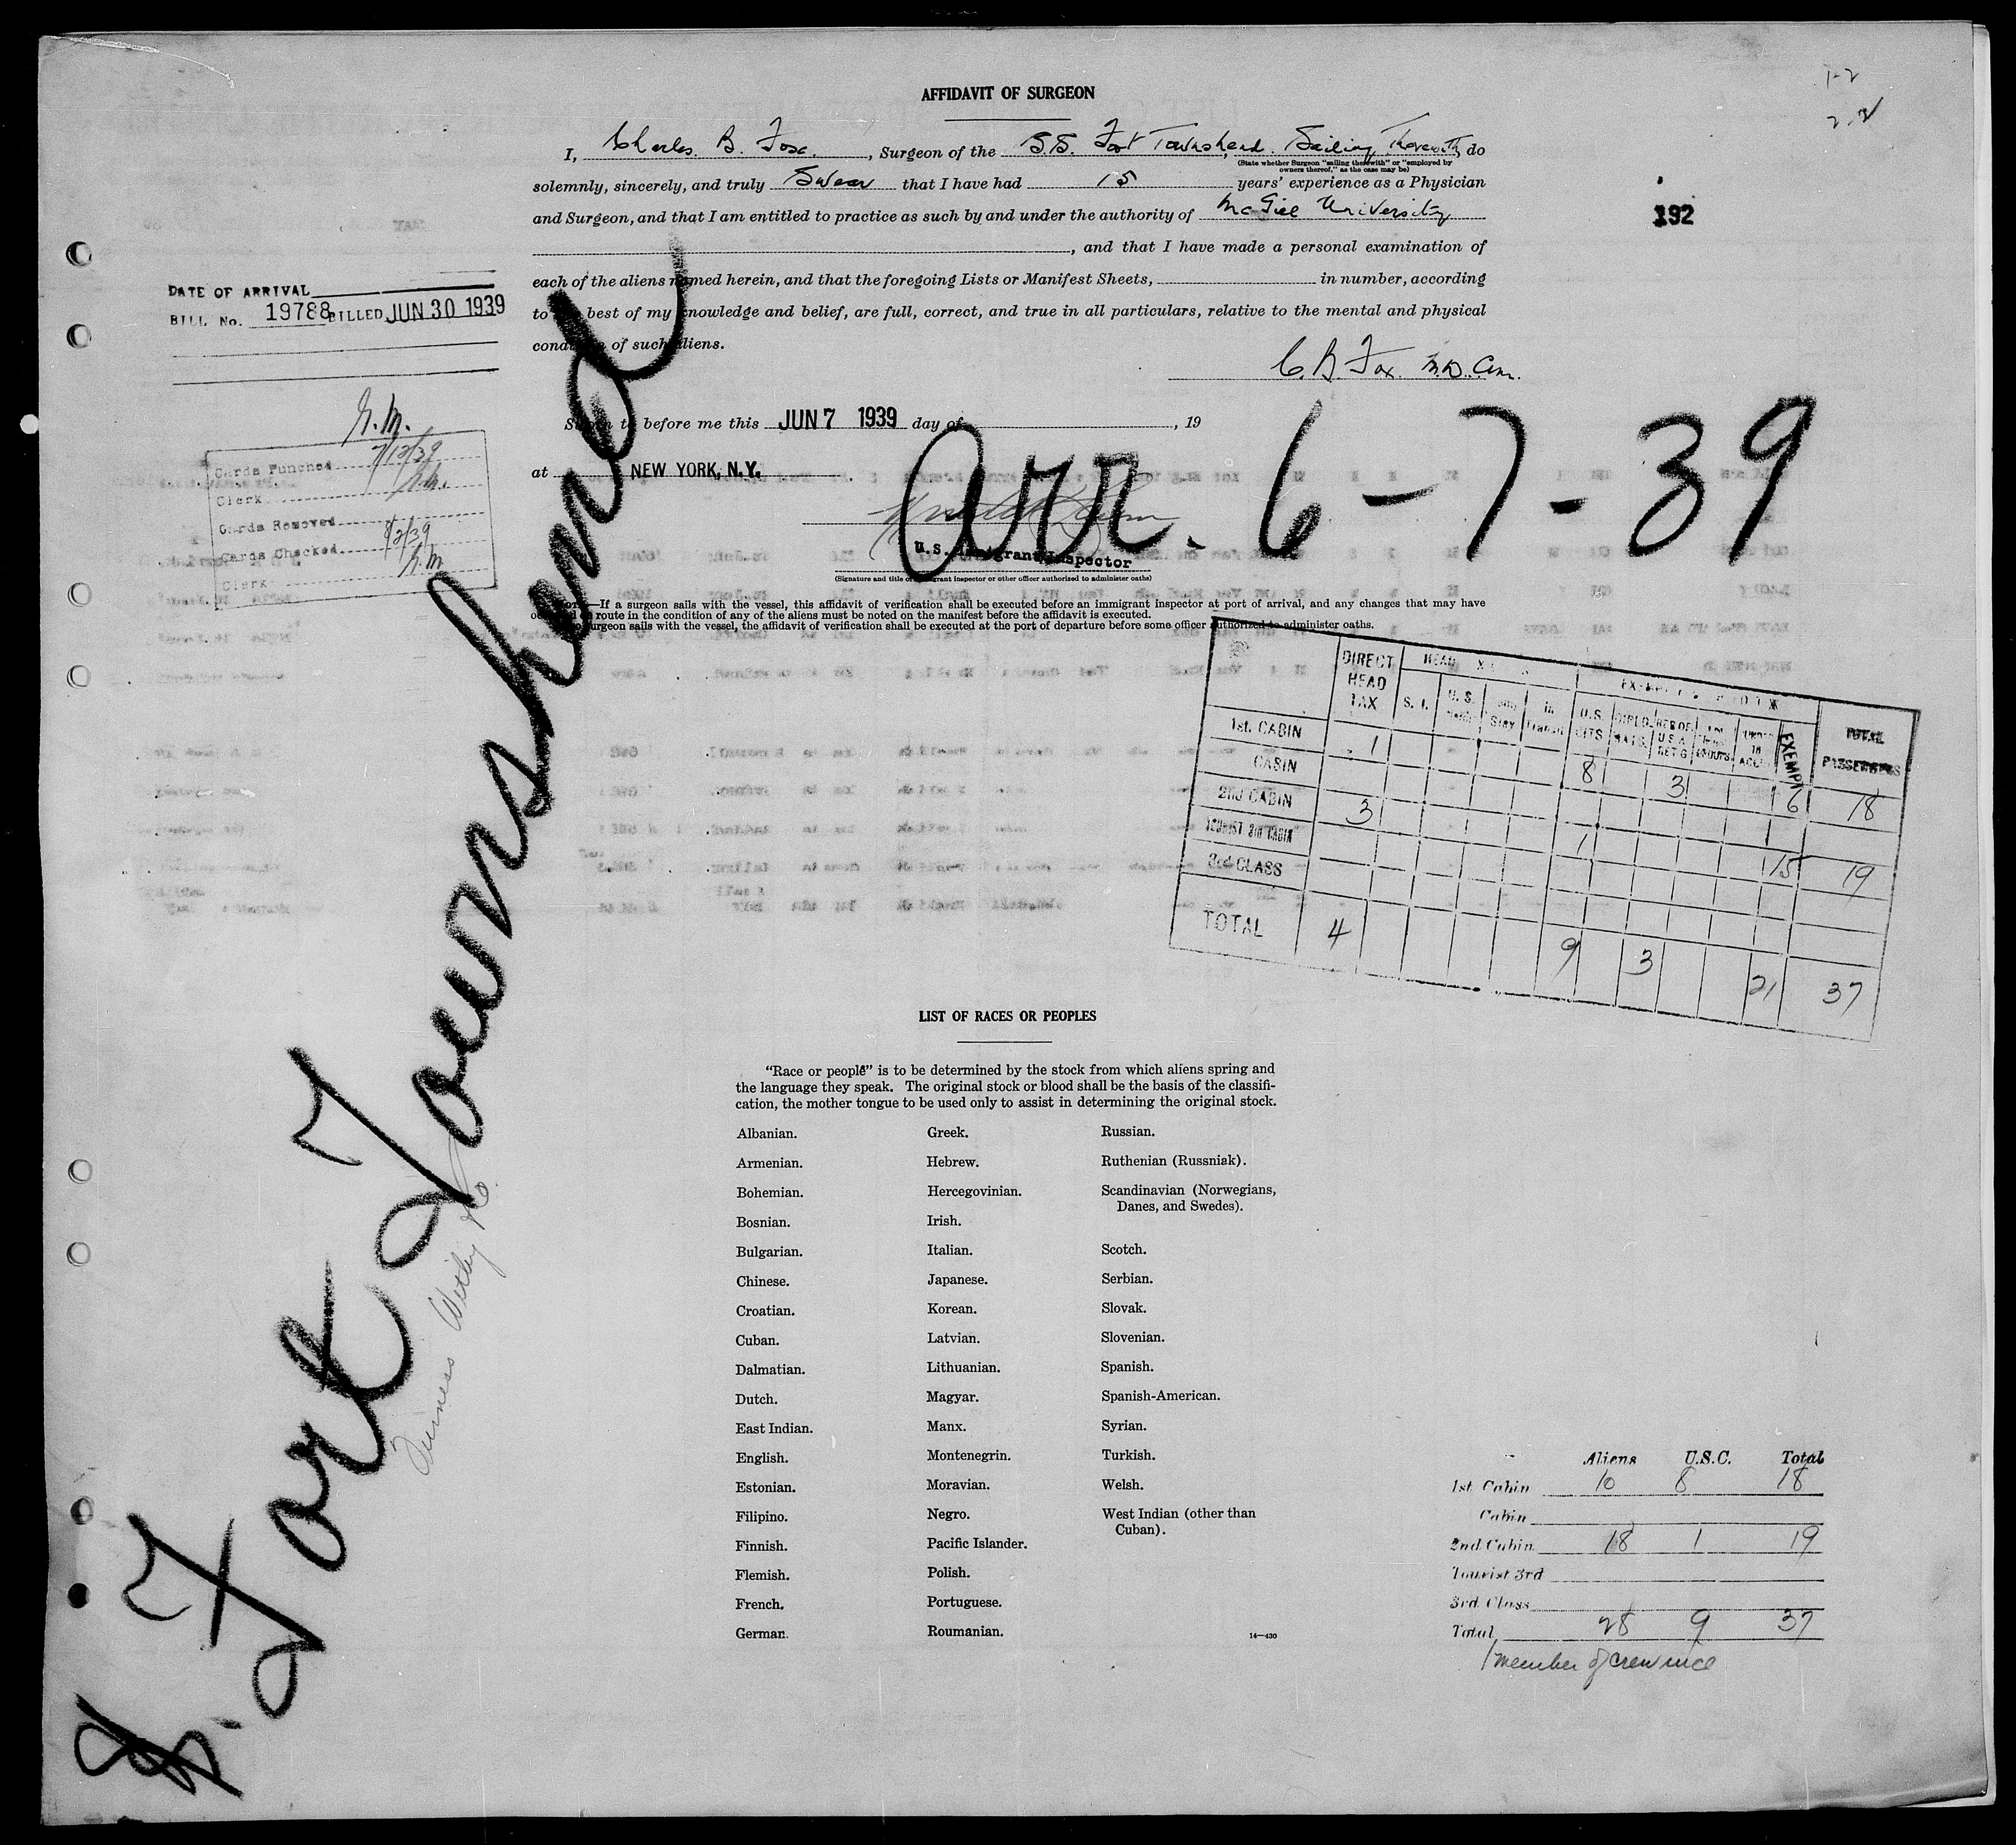 1-2
2-2
AFFIDAVIT OF SURGEON
I, Charles. B. Fox., Surgeon of the S.S. Fort Townshend. Sailing Therewith, do
(State whether Surgeon "sailing therewith" or "employed by owners thereof," as the case may be)
solemnly, sincerely, and truly Swear that I have had 15 years' experience as a Physician
and Surgeon, and that I am entitled to practice as such by and under the authority of McGill University
, and that I have made a personal examination of
each of the aliens named herein, and that the foregoing Lists or Manifest Sheets, in number, according
to the best of my knowledge and belief, are full, correct, and true in all particulars, relative to the mental and physical
condition of such aliens.
192
C. B. Fox. M.D.
DATE OF ARRIVAL
BILL No. 19788 BILLED JUN 30 1939
Sworn to before me this JUN 7 1939 day of , 19
at NEW YORK, N.Y.
Arr. 6-7-39
U.S. Immigrant Inspector
(Signature and title of immigrant inspector or other officer authorized to administer oaths)
NOTE.—If a surgeon sails with the vessel, this affidavit of verification shall be executed before an immigrant inspector at port of arrival, and any changes that may have
occurred en route in the condition of any of the aliens must be noted on the manifest before the affidavit is executed.
If no surgeon sails with the vessel, the affidavit of verification shall be executed at the port of departure before some officer authorized to administer oaths.
Cards Punched 7/12/39
Clerk
Cards Removed
Cards Checked 8/2/39
Clerk
S.S. Fort Townshend
Furness Withy Co.
DIRECT HEAD TAX
HEAD TAX
S. I.
U. S.
Stay
in Transit
U.S. CITS
DIPLOMATS
RES OF U.S.A. RET'G
UNDER 16
EXEMPT
TOTAL PASSENGERS
1st. CABIN 1 8 3 6 18
CABIN
2nd CABIN 3 1 15 19
TOURIST 3rd CABIN
3rd CLASS
TOTAL 4 9 3 21 37
LIST OF RACES OR PEOPLES
"Race or people" is to be determined by the stock from which aliens spring and
the language they speak. The original stock or blood shall be the basis of the classifi-
cation, the mother tongue to be used only to assist in determining the original stock.
Albanian.
Armenian.
Bohemian.
Bosnian.
Bulgarian.
Chinese.
Croatian.
Cuban.
Dalmatian.
Dutch.
East Indian.
English.
Estonian.
Filipino.
Finnish.
Flemish.
French.
German.
Greek.
Hebrew.
Hercegovinian.
Irish.
Italian.
Japanese.
Korean.
Latvian.
Lithuanian.
Magyar.
Manx.
Montenegrin.
Moravian.
Negro.
Pacific Islander.
Polish.
Portuguese.
Roumanian.
Russian.
Ruthenian (Russniak).
Scandinavian (Norwegians,
Danes, and Swedes).
Scotch.
Serbian.
Slovak.
Slovenian.
Spanish.
Spanish-American.
Syrian.
Turkish.
Welsh.
West Indian (other than
Cuban).
14—430
Aliens U.S.C. Total
1st. Cabin 10 8 18
Cabin
2nd Cabin 18 1 19
Tourist 3rd
3rd. Class
Total 28 9 37
1 member of crew